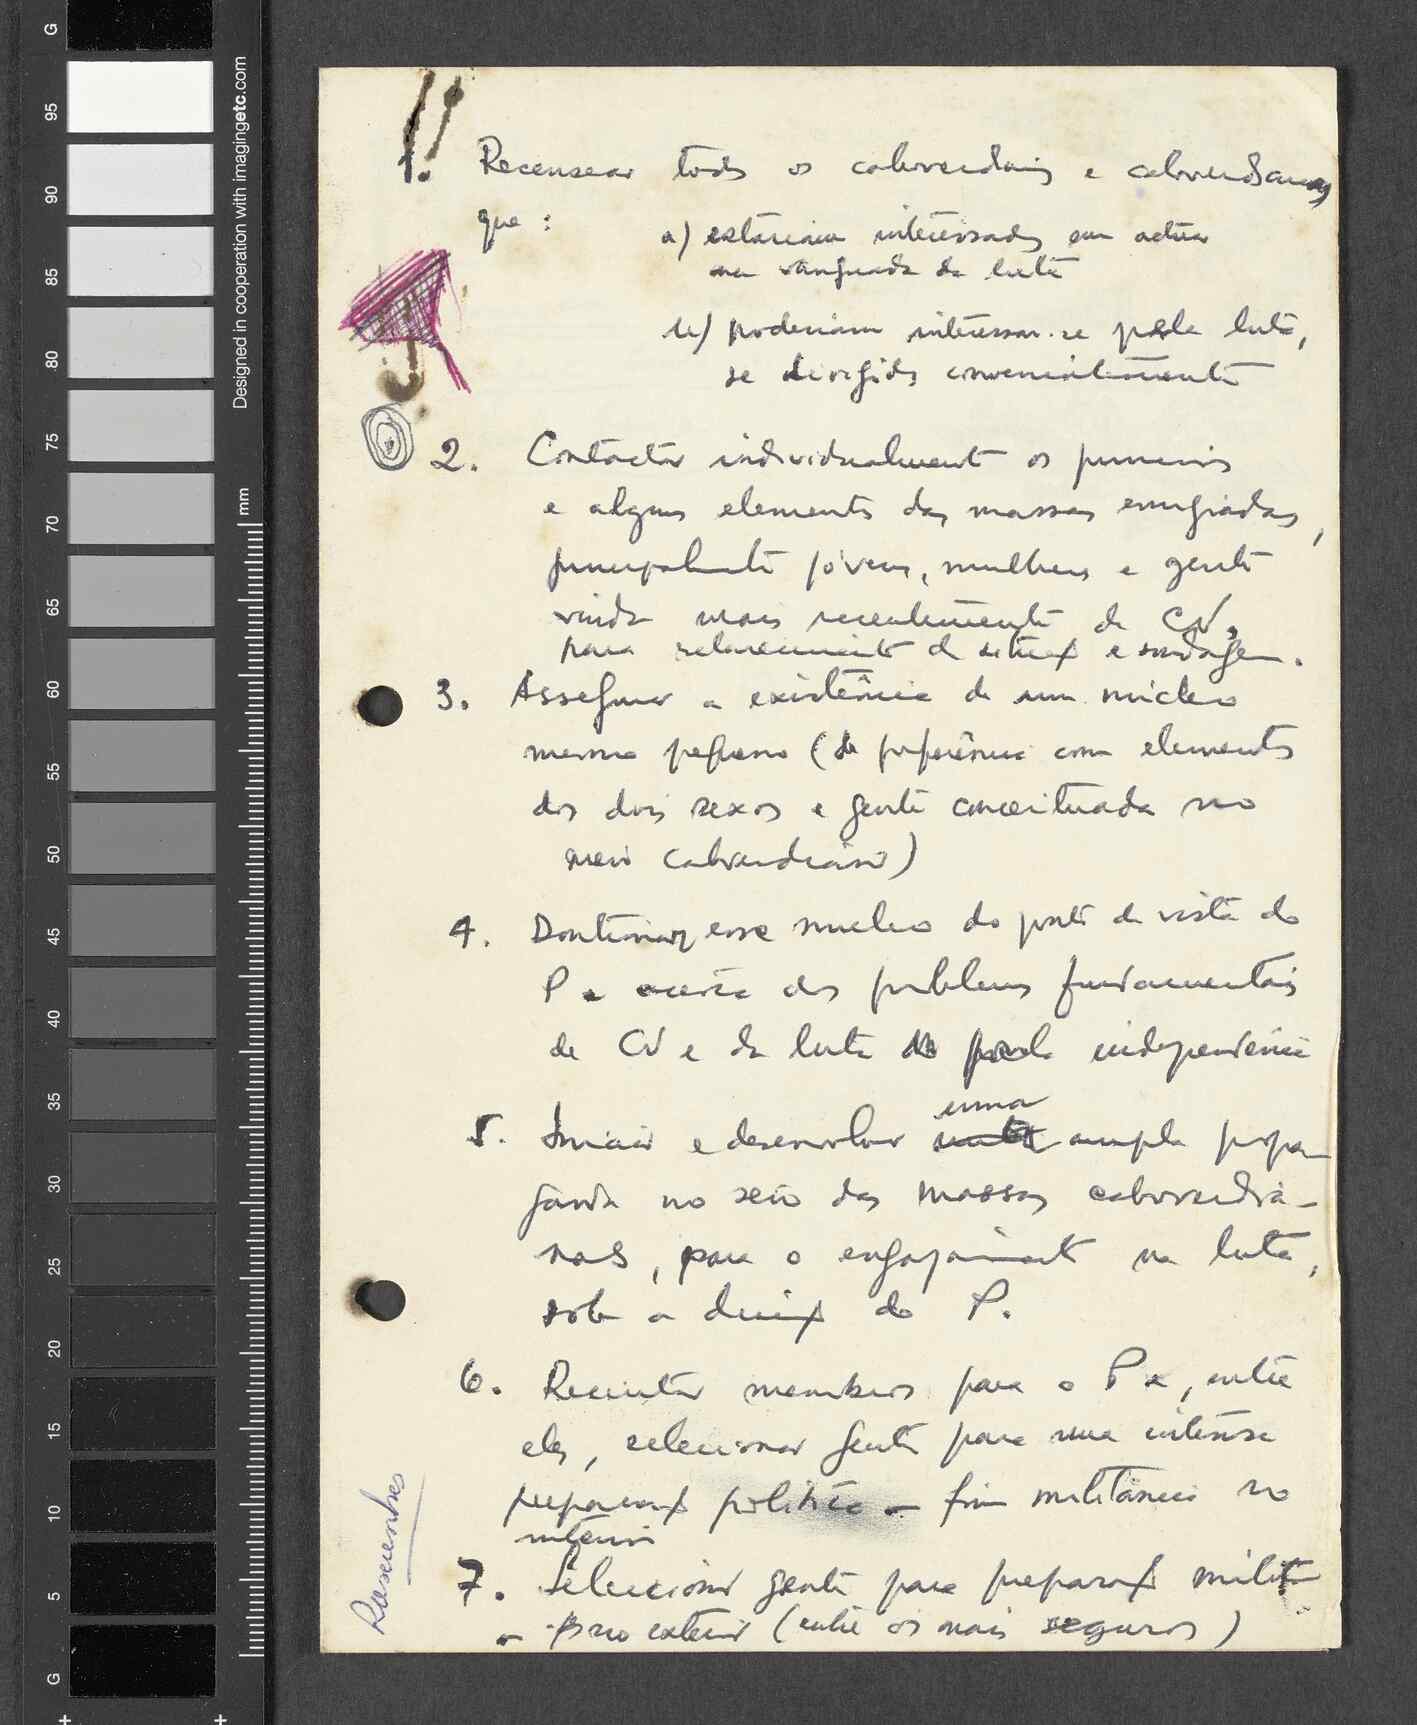 1. Recensear todos os caboverdianos e caboverdianas
que :
a) estariam interessados em actuar
na vanguarda da luta
b) poderiam interessar-se pela luta,
se dirigidos convenientemente
2. Contactar individualmente os primeiros
e alguns elementos das massas emigradas,
principalmente jóvens, mulheres e gente
vinda mais recentemente de CV,
para esclarecimento da situação e sondagem.
3. Assegurar a existência de um núcleo
mesmo pequeno (de preferência com elementos
dos dois sexos e gente conceituada no
meio caboverdiano)
4. Doutrinar esse nucleo do ponto de vista do
P. acerca dos problemas fundamentais
de CV e da luta pela independência
5. Iniciar e desenvolver uma ampla propa-
ganda no seio das massas caboverdia-
nas, para o engajamento na luta,
sob a direcção do P.
6. Recrutar membros para o P e, entre
eles, selecionar gente para uma intensa
preparação política - fim militância no
interior
7. Seleccionar gente para preparação milit.
no exterior (entre os mais seguros)
Rascunhos
Designed in cooperation with imagingetc.com
mm
G
95
90
85
80
75
70
65
60
55
50
45
40
35
30
25
20
15
10
5
G